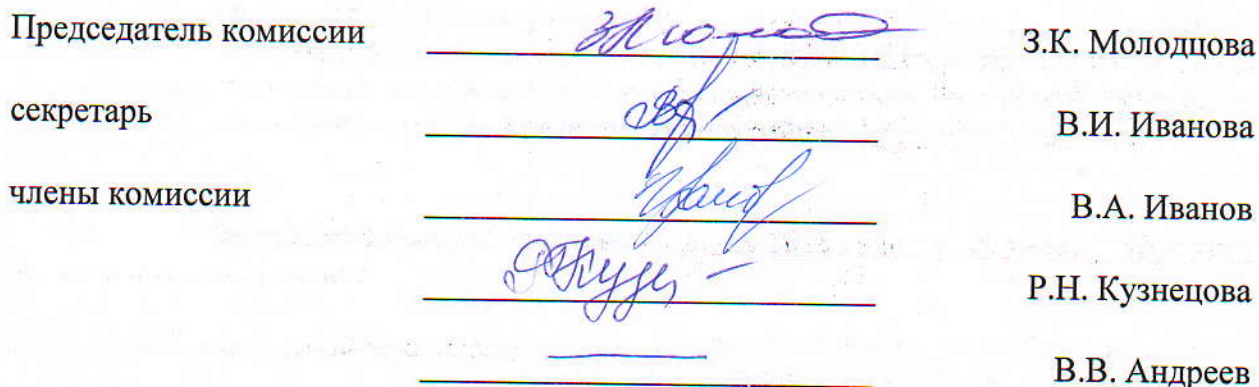 Председатель комиссии З.К. Молодцова
секретарь В.И. Иванова
члены комиссии В.А. Иванов
Р.Н. Кузнецова
В.В. Андреев